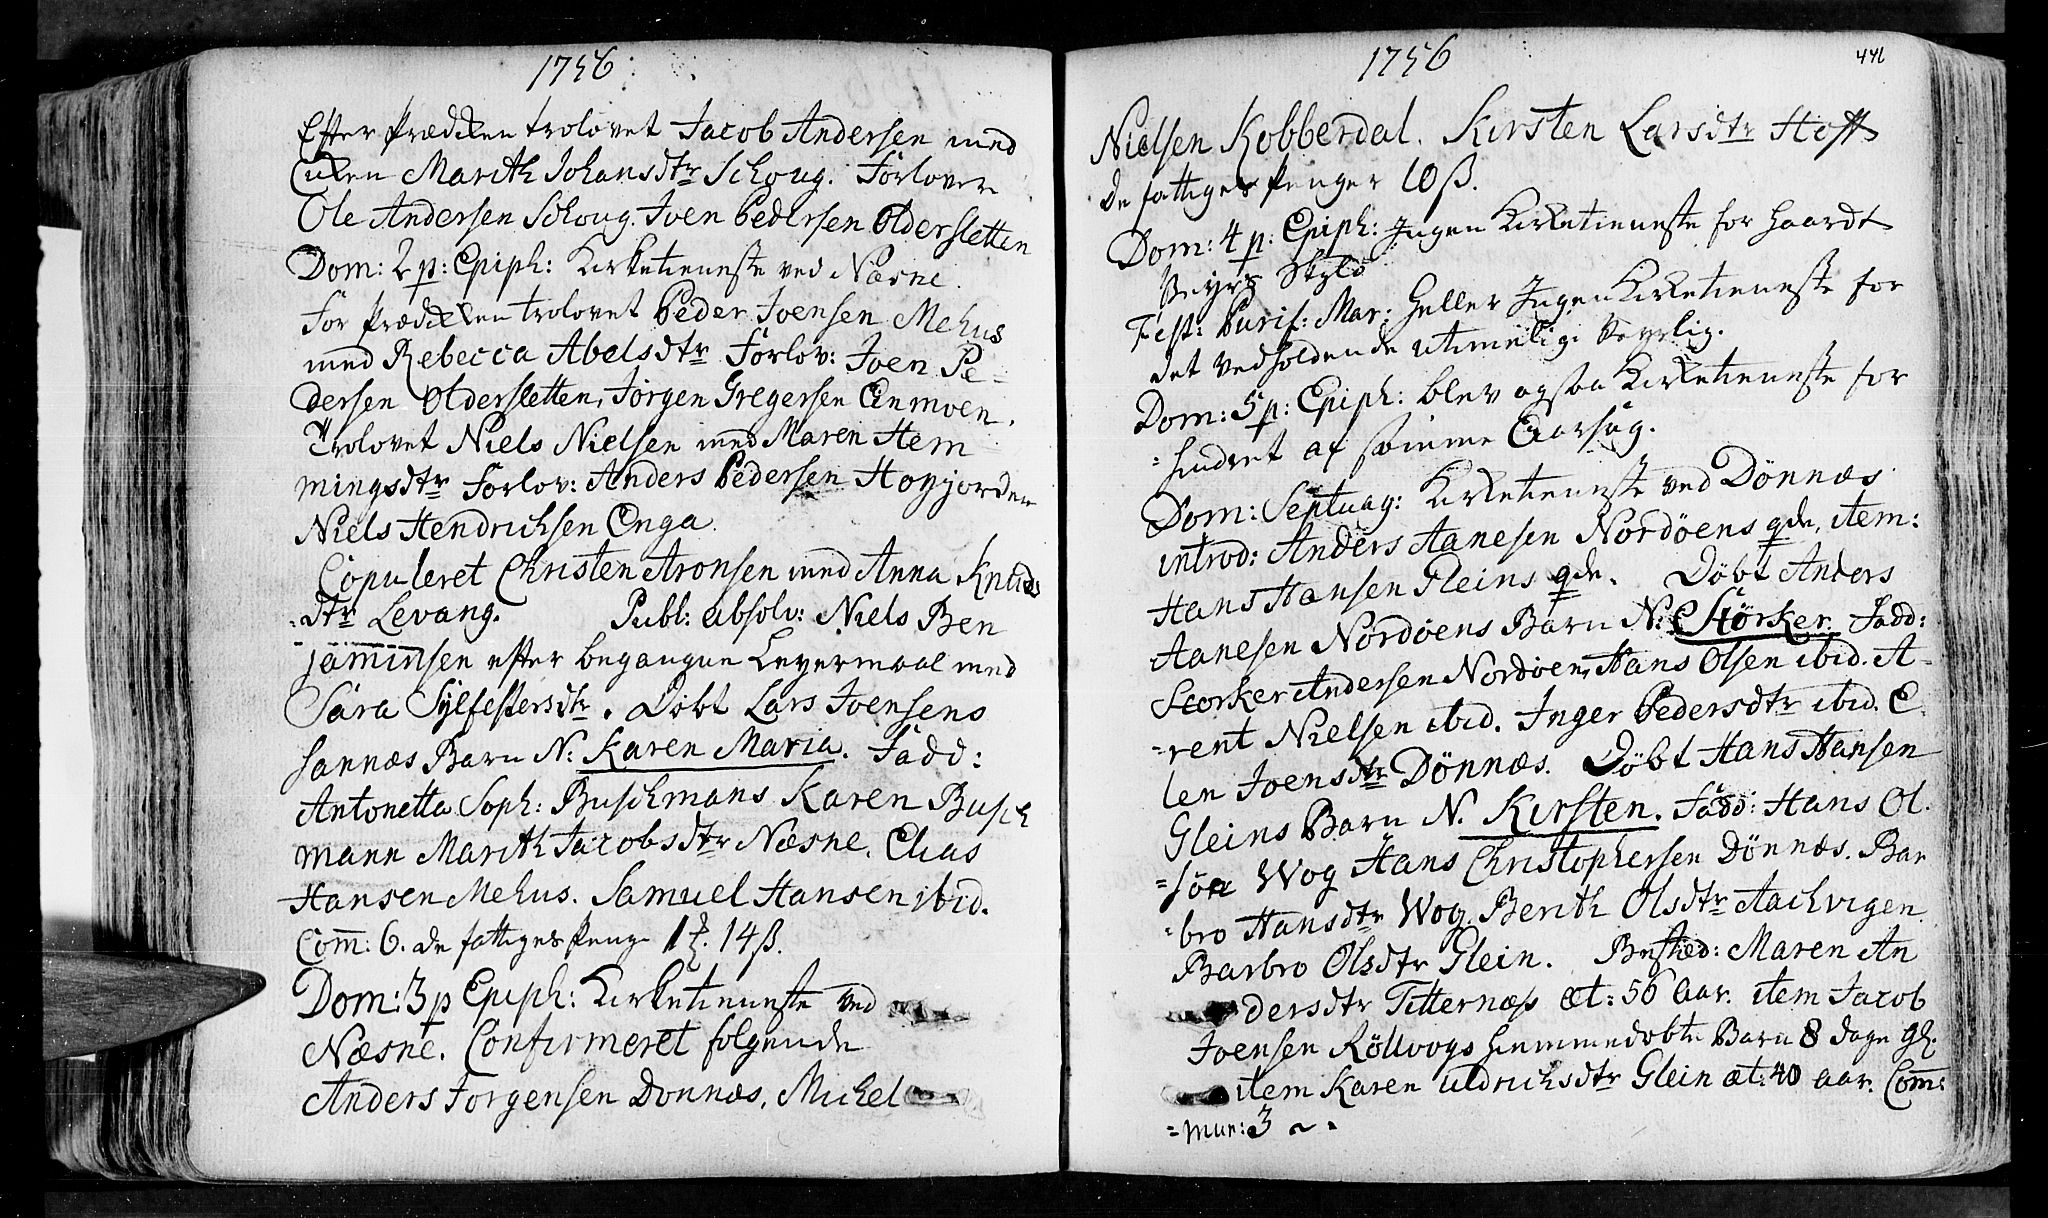 1756
Efter Prædiken trolovet Jacob Andersen med
Enken Marith Johansdtr Schoug. Forlover
Ole Andersen Schoug. Joen Pedersen Oldersletten
Dom: 2 p: Epiph: Kirketieneste ved Næsne.
For Prædiken trolovet Peder Joensen Mehus
med Rebecca Abelsdtr Forlov: Joen Pe-
dersen Oldersletten, Jørgen Gregersen Einmoen.
Trolovet Niels Nielsen med Maren Hem
mingsdtr Forlov: Anders Pedersen Høyjorden
Niels Hendrichsen Enga.
Copuleret Christen Aronsen med Anna Knuds
-dtr Levang. Publ: absolv: Niels Ben
jaminsen efter begangne Leyermaal med
Sara Sylfestersdtr. Døbt Lars Joensens
Sannæs Barn N: Karen Maria. Fadd:
Antonetta Soph: Buschmans Karen Busch
mann Marith Jacobsdtr Næsne. Elias
Hansen Mehus. Samuel Hansen ibid.
Com: 6. de fattiges Penge 1 14 ß.
Dom: 3 p Epiph: Kirketieneste ved
Næsne. Confirmeret følgende
Anders Jorgensen Donnæs, Michel
1756
441
Nielsen Kobberdal. Kirsten Larsdtr Hoff
de fattiges Penger 10 ß.
Dom: 4 p: Epiph: Ingen Kirketieneste for haardt
Veyrs Skyld
Fest: Purif: Mar: heller Ingen Kirketieneste for
det vedholdende utimelige Veyrlig.
Dom: 5 p: Epiph: blev ogsaa Kirketieneste for
-hindret af samme Aarsag.
Dom: Septuag: Kirketieneste ved Dönnæs
introd: Anders Aanesen Nordöens qde, item:
Hans Hansen Gleins qde. Döbt Anders
Aanesen Nordöens Barn N: Störker. Fadd:
Storker Andersen Nordöen, Hans Olsen ibid. A-
-rent Nielsen ibid. Inger Pedersdtr ibid. E-
len Joensdtr Dönnæs. Döbt Hans Hansen
Gleins Barn N. Kirsten. Fadd: Hans Ol-
=sön Wog Hans Christophersen Dönnæs. Bar
-bro Hansdtr Wog. Berith Olsdtr Aachvigen
Barbro Olsdtr Glein. Bested: Maren An
dersdtr Titternæss æt: 56 aar. item Jacob
Joensen Röllvogs hiemmedøbte Barn 8 dage gl.
item Karen Uldrichsdtr Glein æt: 40 aar. Com:
=mun: 3